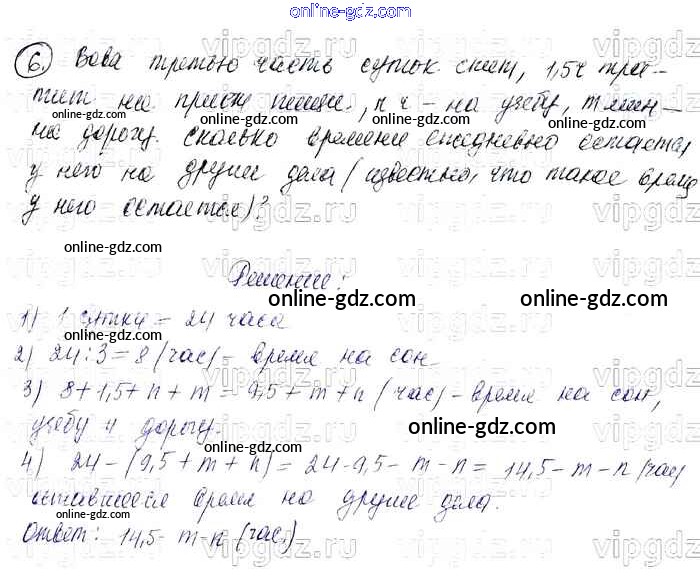 online-gdz.com
6. Вова третью часть суток спит, 1,5 ч тра-
тит на прием пищи, n ч - на учебу, m мин -
на дорогу. Сколько времени ежедневно остается
у него на другие дела (известно, что такое время
у него остается)?
online-gdz.com
Решение:
online-gdz.com
1) 1 сутки = 24 часа
2) 24:3=8 (час) - время на сон.
3) 8+1,5+n+m = 9,5+m+n (час) - время на сон,
учебу и дорогу.
online-gdz.com
4) 24-(9,5+m+n)= 24-9,5-m-n = 14,5-m-n (час)
оставшееся время на другие дела.
Ответ: 14,5-m-n (час.)
online-gdz.com